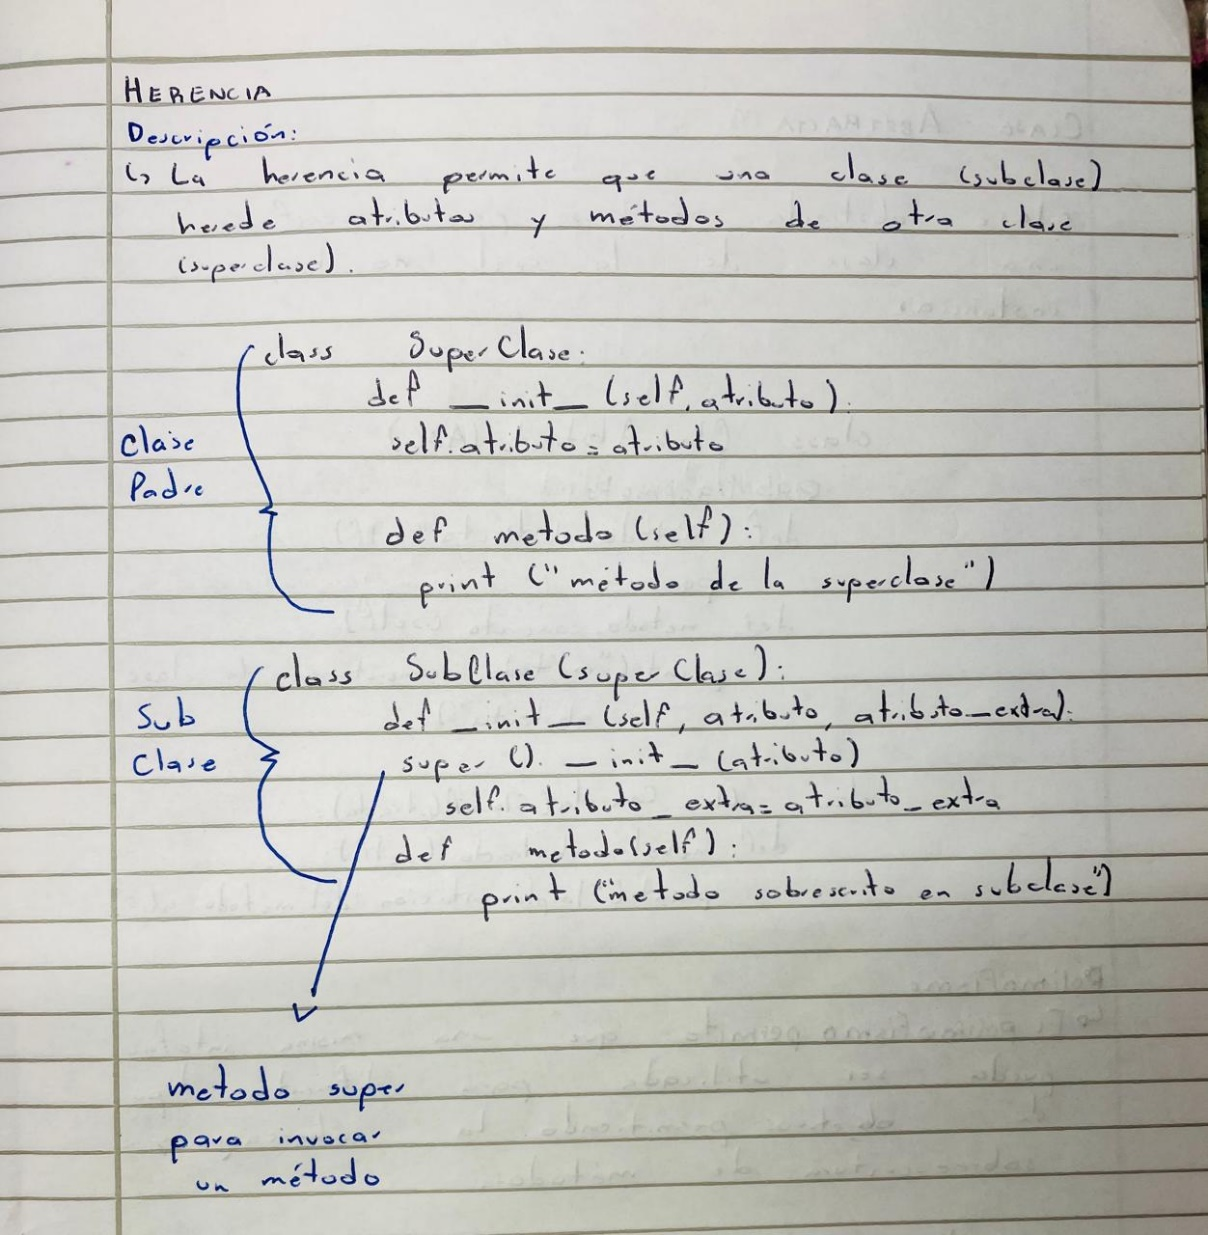 HERENCIA
Descripción:
↳ La herencia permite que una clase (subclase)
herede atributos y métodos de otra clase
(superclase).
class SuperClase:
def __init_ (self, atributo):
self.atributo = atributo
Clase
Padre
def metodo (self):
print ("método de la superclase")
class SubClase (super Clase):
Sub
Clase
def _init_ (self, atributo, atributo_extra):
super (). _init_ (atributo)
self. atributo _ extra = atributo_extra
def metodo (self):
print ("metodo sobrescrito en subclase")
metodo super
para invocar
un método